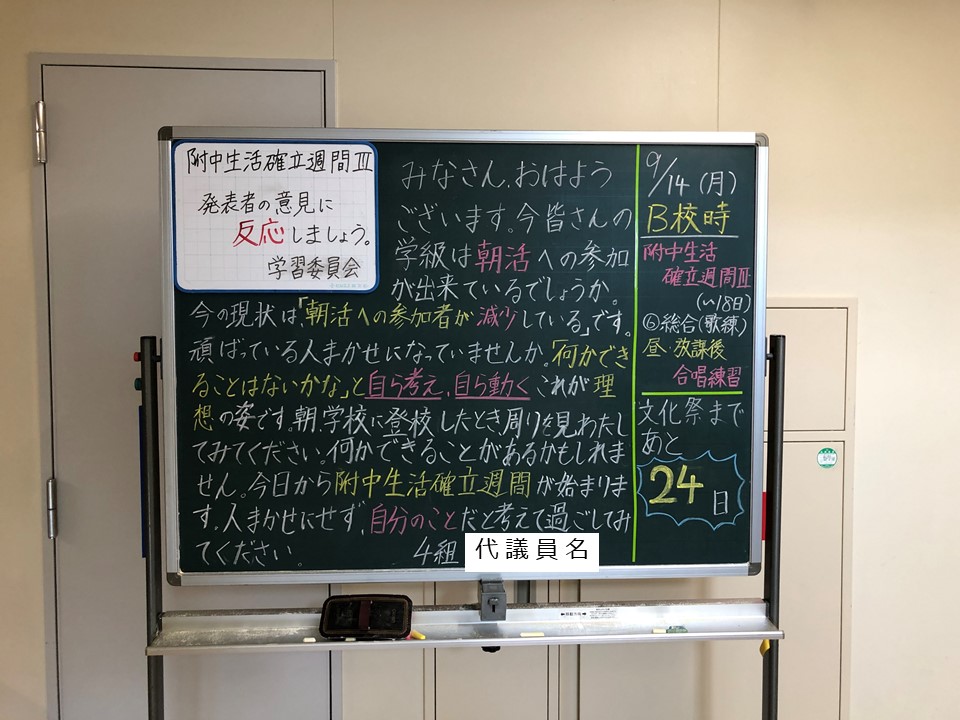 附中生活確立週間Ⅲ
発表者の意見に
反応しましょう。
学習委員会
みなさん、おはよう
ございます。今皆さんの
学級は朝活への参加
が出来ているでしょうか。
今の現状は、「朝活への参加者が減少している」です。
頑ばっている人まかせになっていませんか。「何かでき
ることはないかな」と自ら考え、自ら動くこれが理
想の姿です。朝、学校に登校したとき周りを見わたし
てみてください。何かできることがあるかもしれま
せん。今日から附中生活確立週間が始まりま
す。人まかせにせず、自分のことだと考えて過ごしてみ
てください。
4組 代議員名
9/14(月)
B校時
附中生活
確立週間Ⅲ
(~18日)
⑥総合(歌練)
昼・放課後
合唱練習
文化祭まで
あと
24日